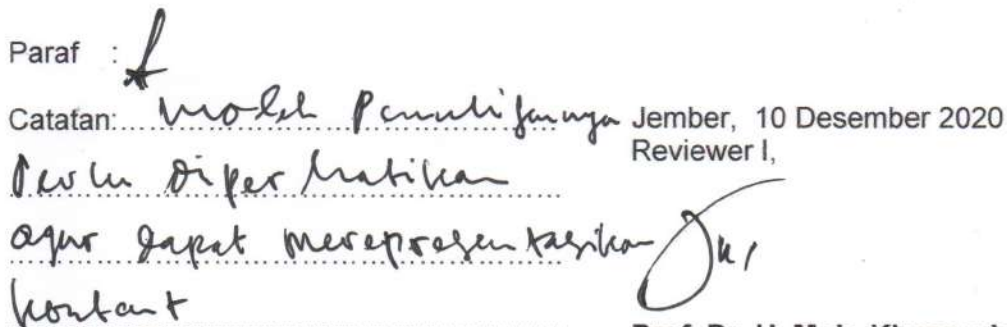 Paraf :
Catatan: Model Penulisannya
Perlu diperhatikan
agar dapat merepresentasikan
Jember, 10 Desember 2020
Reviewer I,